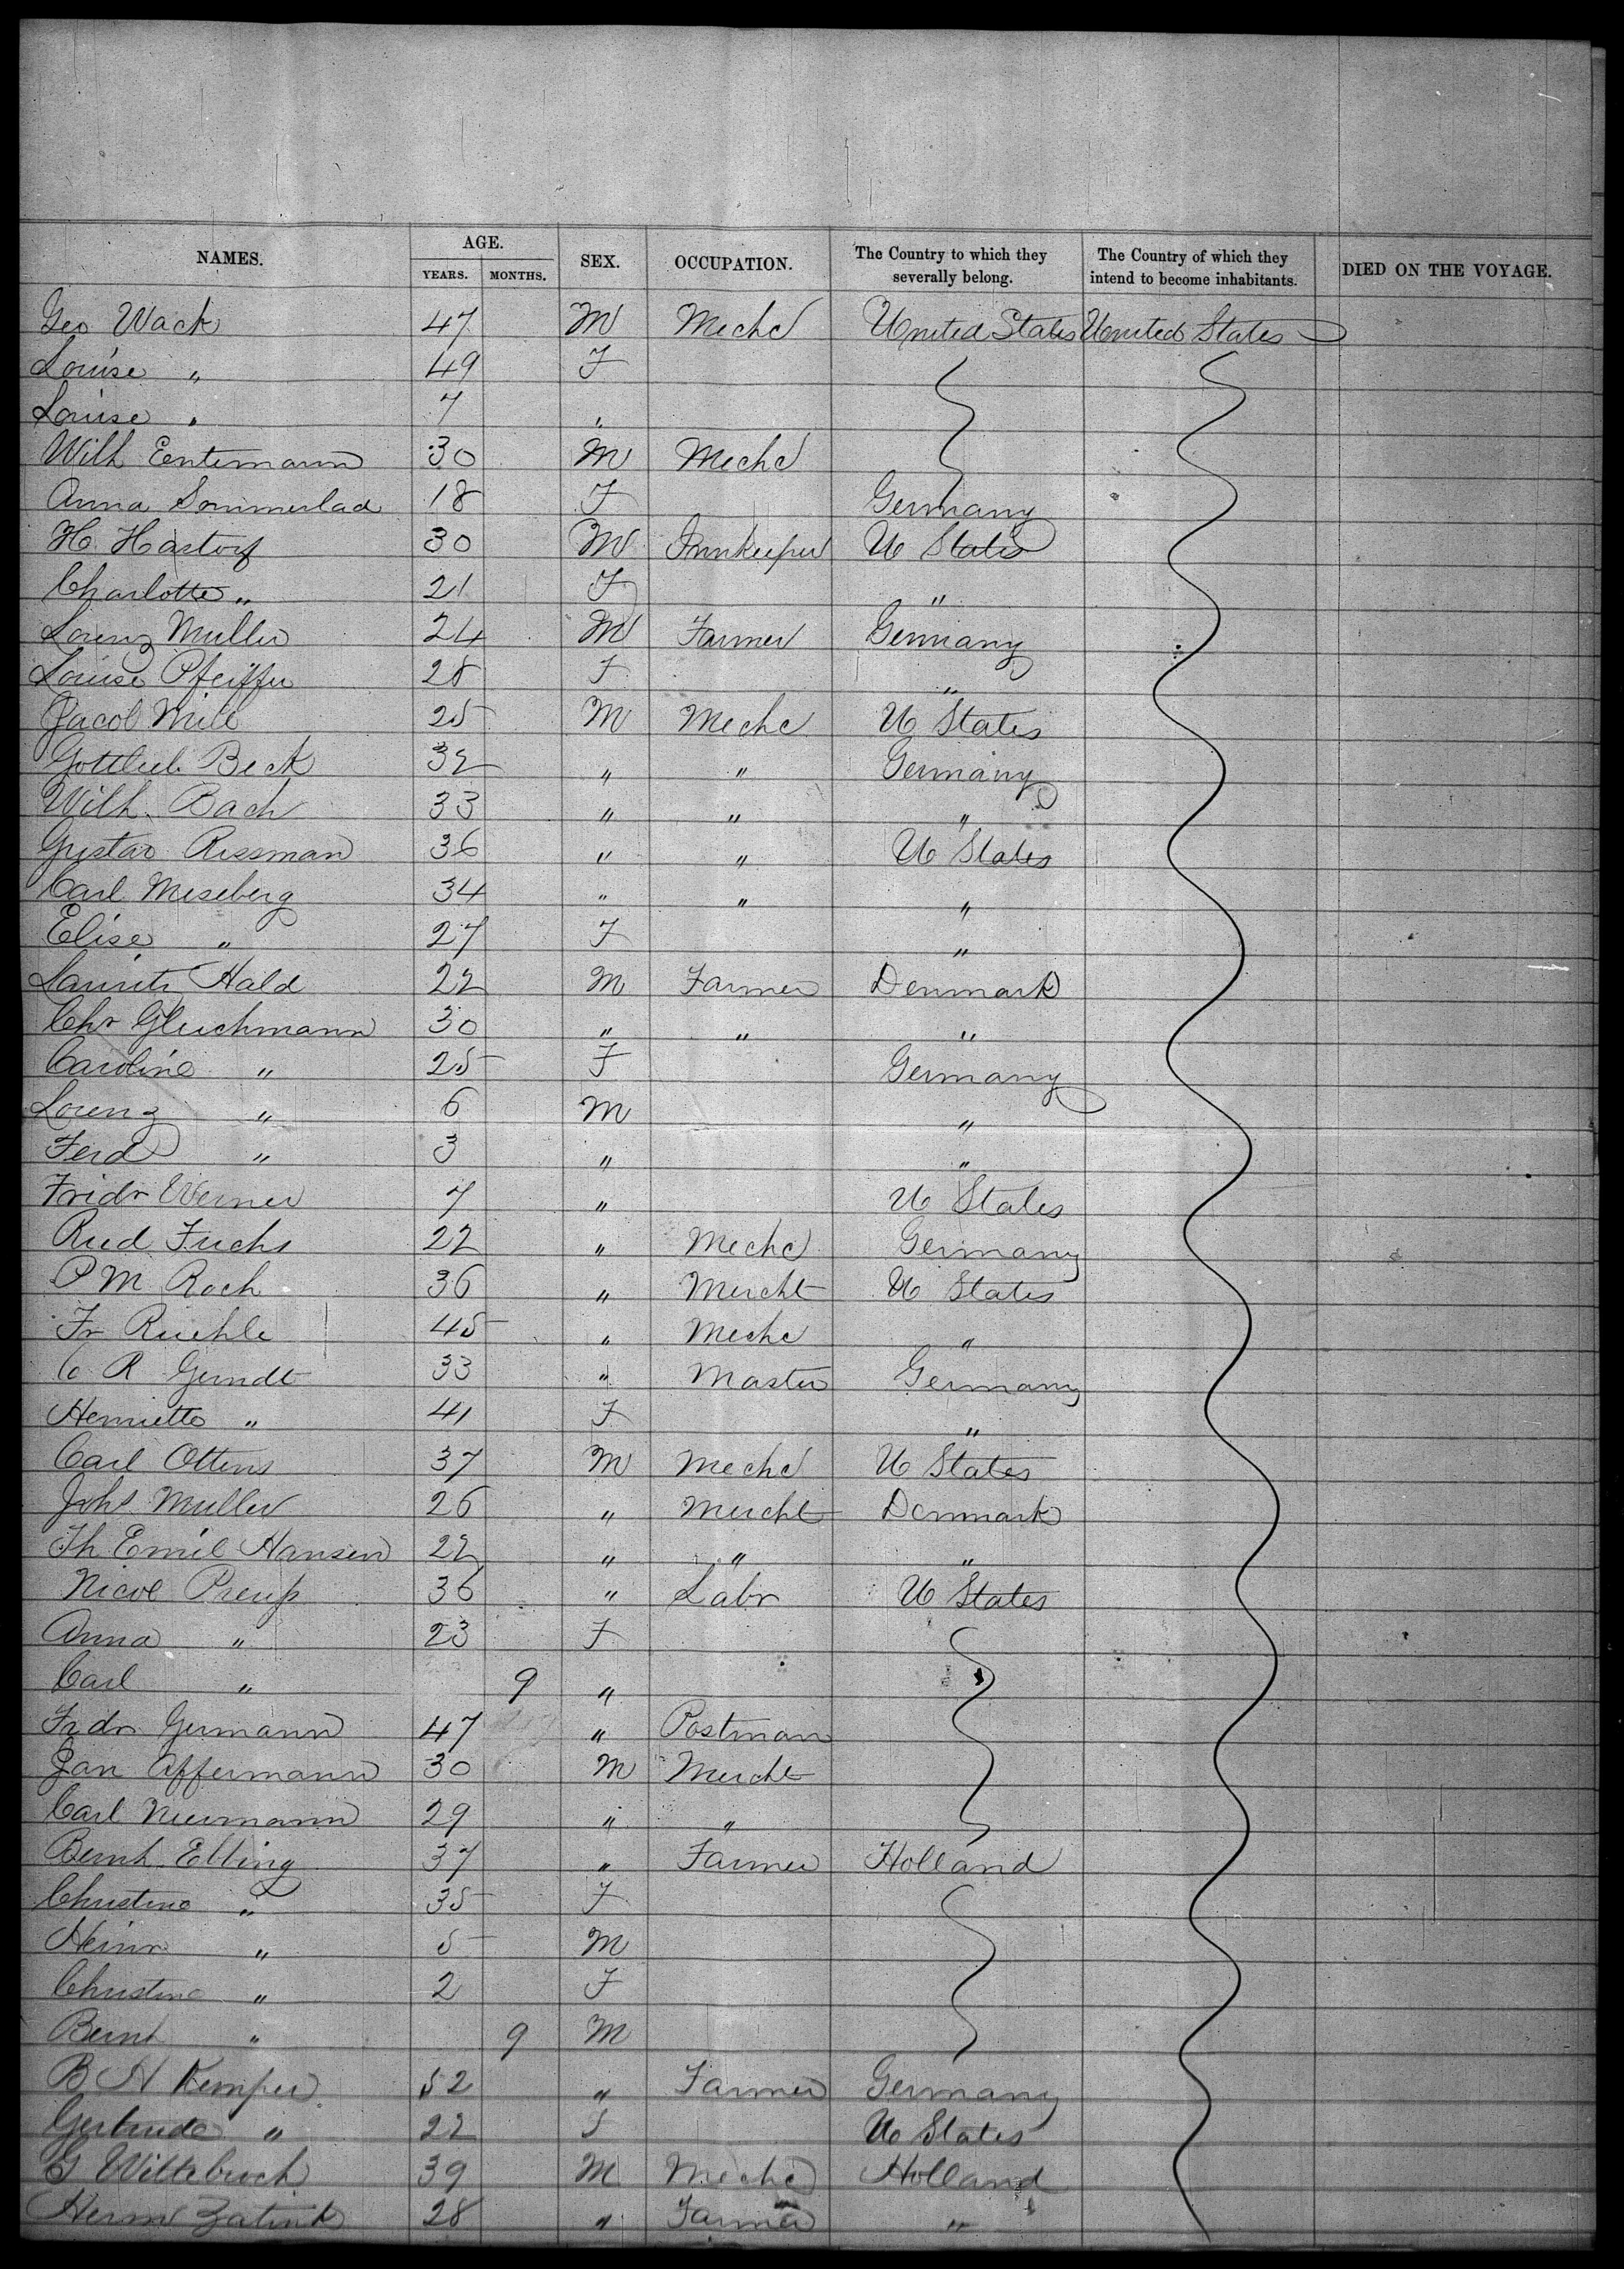 NAMES. AGE. YEARS. MONTHS. SEX. OCCUPATION. The Country to which they severally belong. The Country of which they intend to become inhabitants. DIED ON THE VOYAGE.
Geo Wack 47 M Mechc United States United States
Louise " 49 F
Louise " 7 "
Wilh Entemann 30 M Mechc
Anna Sommerlad 18 F Germany
H. Hastorf 30 M Innkeeper U States
Charlotte " 21 F "
Lorenz Muller 24 M Farmer Germany
Louise Pfeiffer 28 F "
Jacob Mill 25 M Mechc U States
Gottlieb Beck 32 " " Germany
Wilh. Bach 33 " " "
Gustav Rissman 36 " " U States
Carl Meseberg 34 " " "
Elise " 27 F "
Lauritz Hald 22 M Farmer Denmark
Chr Gluchmann 30 " " "
Caroline " 25 F Germany
Lorenz " 6 M "
Ferd " 3 " "
Fridr Werner 7 " U States
Rud Fuchs 22 " Mechc Germany
P M Roch 36 " Mercht U States
Fr Ruehle 45 " Mechc "
C R Gerndt 33 " Master Germany
Henriette " 41 F "
Carl Ottens 37 M Mechc U States
Johs Muller 26 " Mercht Denmark
Th Emil Hansen 22 " " "
Nicol Preuss 36 " Labr U States
Anna " 23 F
Carl " 9 "
Frdr Germann 47 " Postman
Jan Affermann 30 M Mercht
Carl Neumann 29 " "
Bernh. Elling 37 " Farmer Holland
Christine " 35 F
Heinr " 5 M
Christine " 2 F
Bernh " 9 M
B H Kemper 52 " Farmer Germany
Gertrude " 22 F U States
G Wiltebroch 39 M Mechc Holland
Herm Zatink 28 " Farmer "